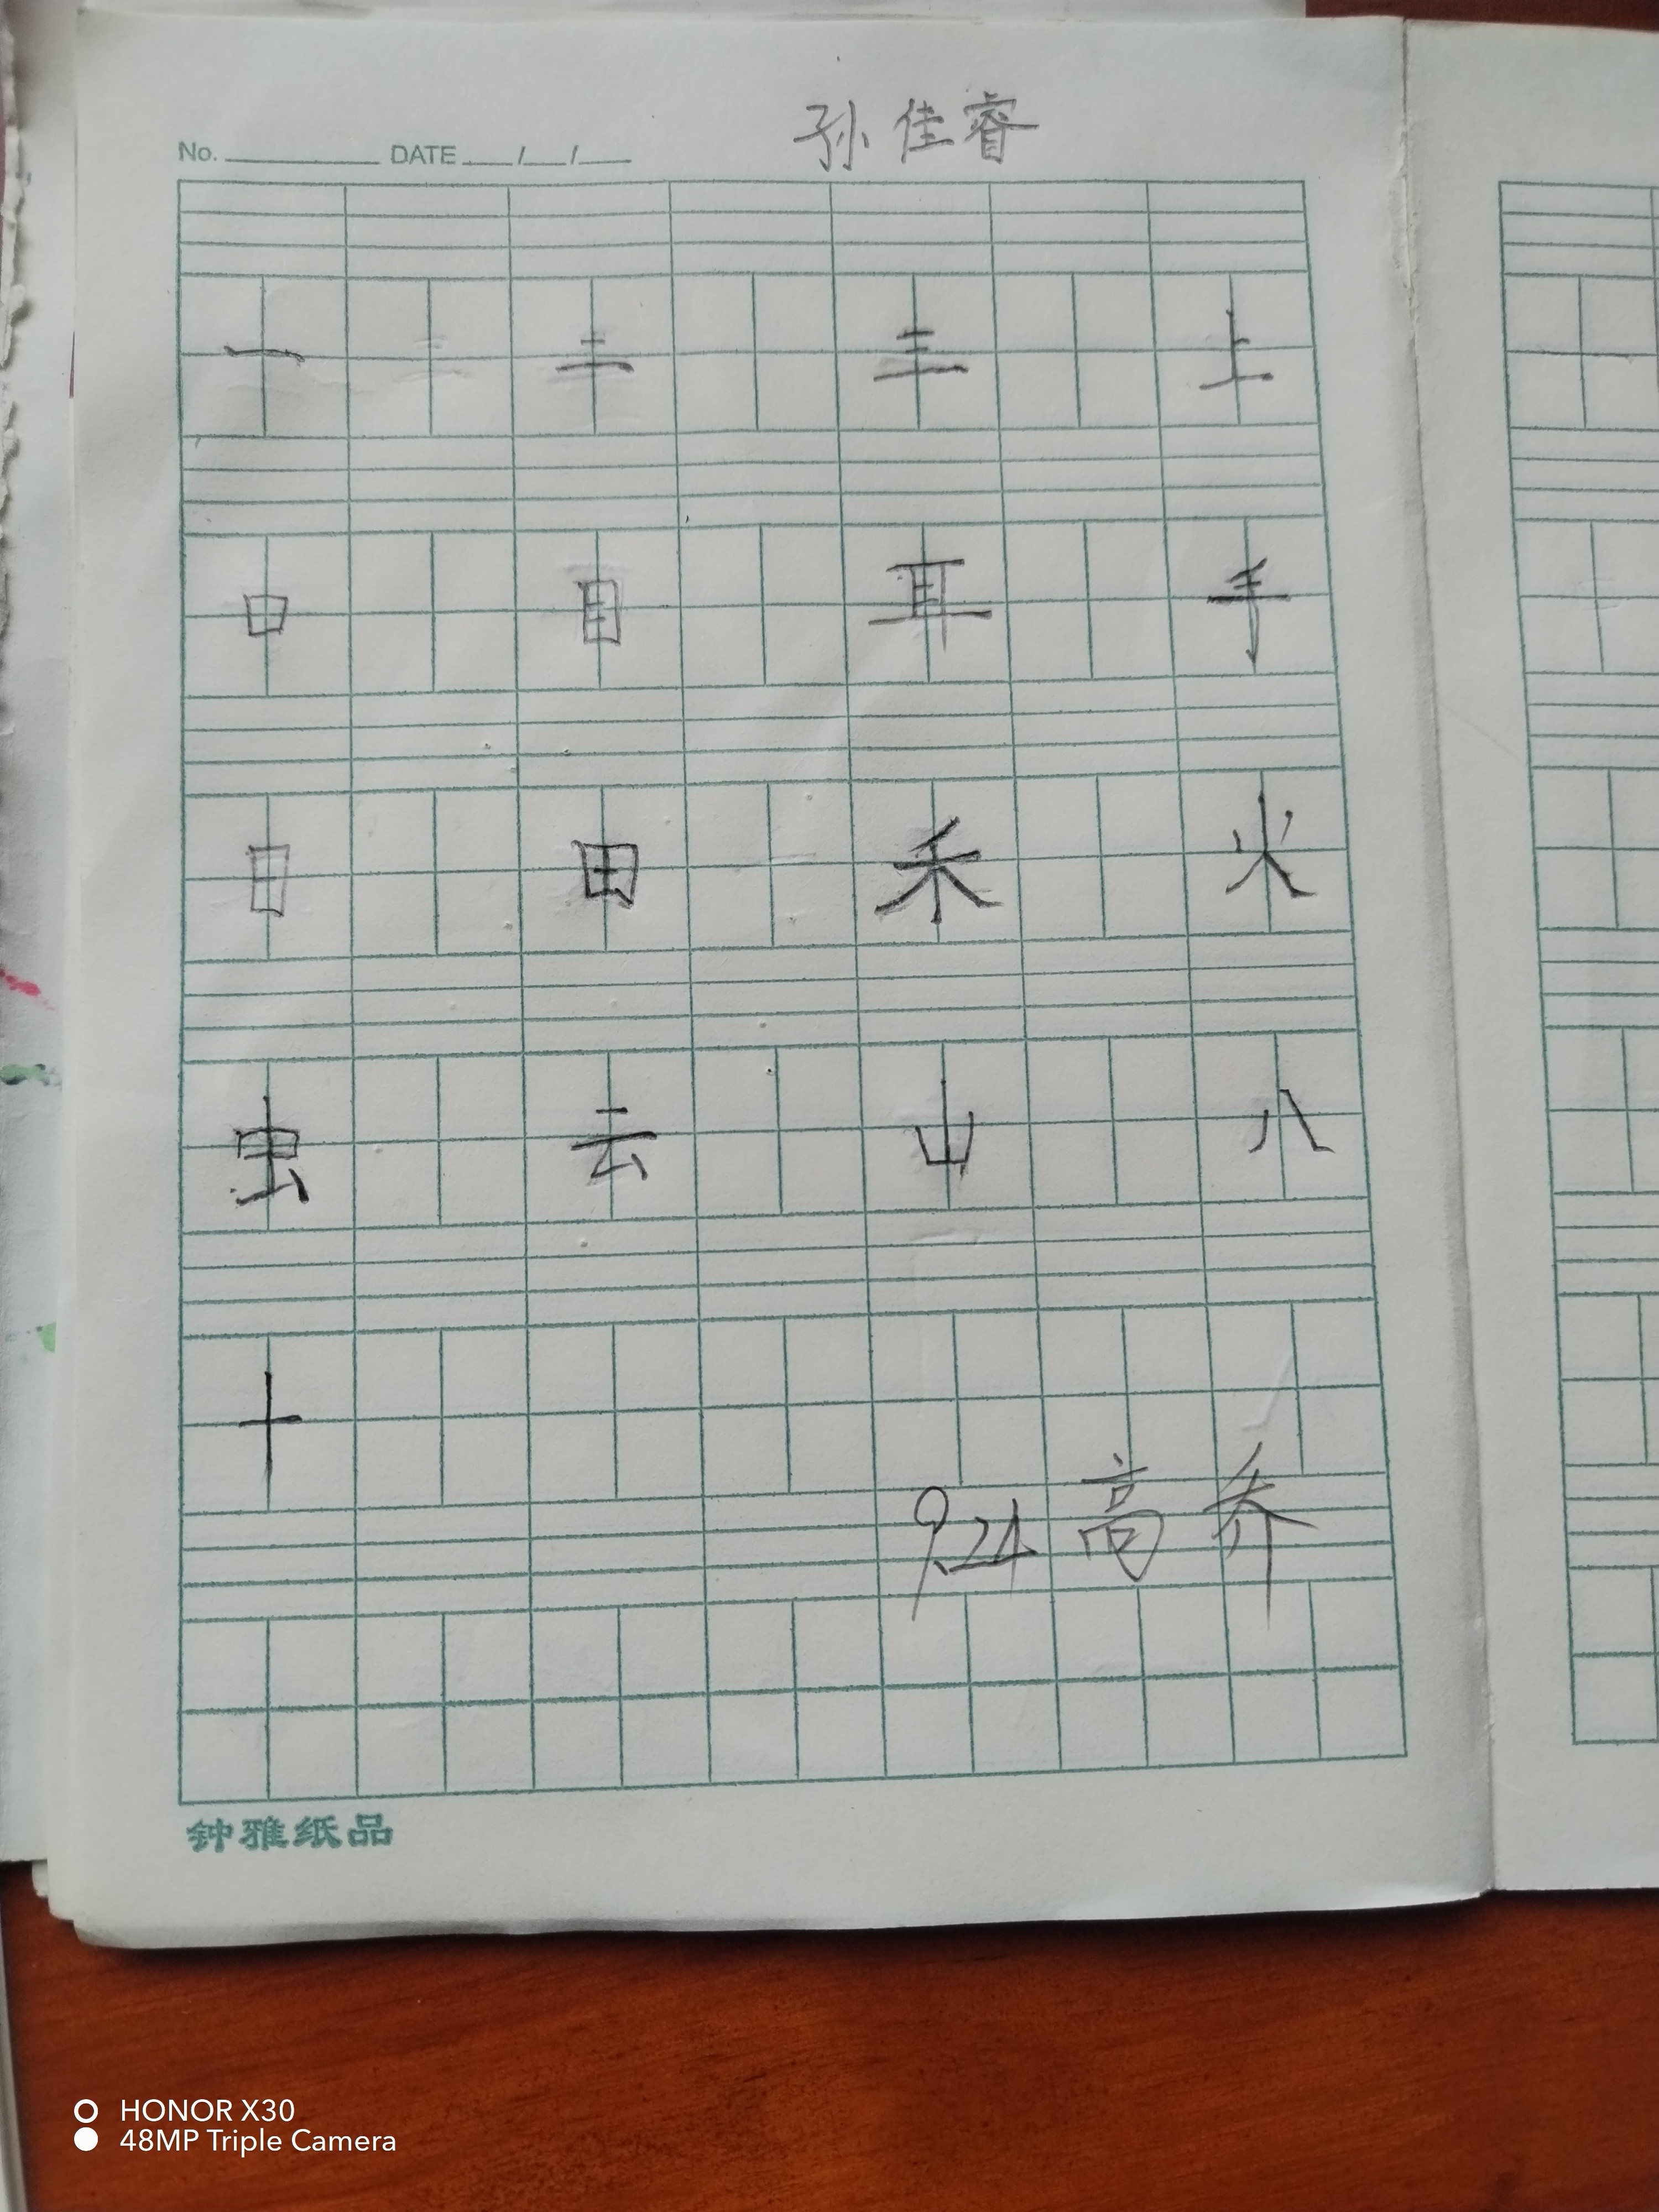 孙佳睿
No. DATE / /
一 二 三 上
口 目 耳 手
日 田 禾 火
虫 云 山 八
十
9.24 高乔
钟雅纸品
HONOR X30
48MP Triple Camera